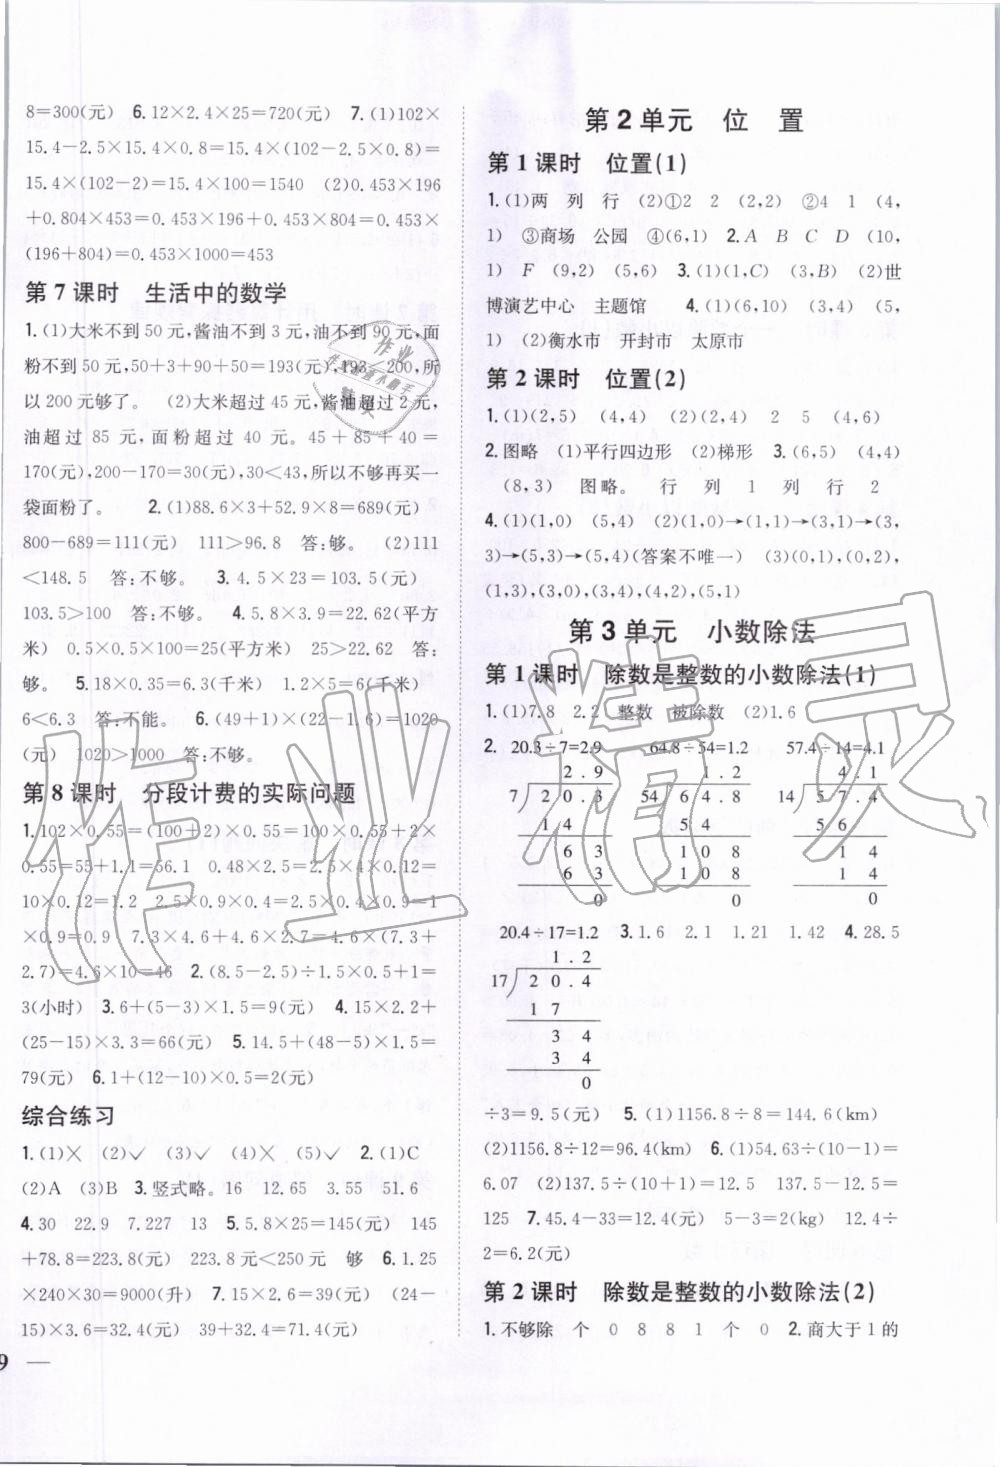 8=300(元) 6.12×2.4×25=720(元) 7.(1)102×
15.4-2.5×15.4×0.8=15.4×(102-2.5×0.8)=
15.4×(102-2)=15.4×100=1540 (2)0.453×196
+0.804×453=0.453×196+0.453×804=0.453×
(196+804)=0.453×1000=453
第7课时 生活中的数学
1.(1)大米不到50元,酱油不到3元,油不到90元,面
粉不到50元,50+3+90+50=193(元),193<200,所
以200元够了。 (2)大米超过45元,酱油超过2元,
油超过85元,面粉超过40元。45+85+40=
170(元),200-170=30(元),30<43,所以不够再买一
袋面粉了。 2.(1)88.6×3+52.9×8=689(元)
800-689=111(元) 111>96.8 答:够。 (2)111
<148.5 答:不够。 3.4.5×23=103.5(元)
103.5>100 答:不够。 4.5.8×3.9=22.62(平方
米) 0.5×0.5×100=25(平方米) 25>22.62 答:
够。 5.18×0.35=6.3(千米) 1.2×5=6(千米)
6<6.3 答:不能。 6.(49+1)×(22-1.6)=1020
(元) 1020>1000 答:不够。
第8课时 分段计费的实际问题
1.102×0.55=(100+2)×0.55=100×0.55+2×
0.55=55+1.1=56.1 0.48×2.5=2.5×4×0.12=
10×0.12=1.2 2.5×0.9×0.4=2.5×0.4×0.9=1
×0.9=0.9 7.3×4.6+4.6×2.7=4.6×(7.3+
2.7)=4.6×10=46 2.(8.5-2.5)÷1.5×0.5+1=
3(小时) 3.6+(5-3)×1.5=9(元) 4.15×2.2+
(25-15)×3.3=66(元) 5.14.5+(48-5)×1.5=
79(元) 6.1+(12-10)×0.5=2(元)
综合练习
1.(1)× (2)✓ (3)✓ (4)× (5)✓ 2.(1)C
(2)A (3)B 3.竖式略。16 12.65 3.55 51.6
4.30 22.9 7.227 13 5.5.8×25=145(元) 145
+78.8=223.8(元) 223.8元<250元 够 6.1.25
×240×30=9000(升) 7.15×2.6=39(元) (24-
15)×3.6=32.4(元) 39+32.4=71.4(元)
9 —
第2单元 位 置
第1课时 位置(1)
1.(1)两 列 行 (2)①2 2 (2,2) ②4 1 (4,
1) ③商场 公园 ④(6,1) 2.A B C D (10,
1) F (9,2) (5,6) 3.(1)(1,C) (3,B) (2)世
博演艺中心 主题馆 4.(1)(6,10) (3,4) (5,
1) (2)衡水市 开封市 太原市
第2课时 位置(2)
1.(1)(2,5) (4,4) (2)(2,4) 2 5 (4,6)
2.图略 (1)平行四边形 (2)梯形 3.(6,5) (4,4)
(8,3) 图略。 行 列 1 列 行 2
4.(1)(1,0) (5,4) (2)(1,0)→(1,1)→(3,1)→(3,
3)→(5,3)→(5,4)(答案不唯一) (3)(0,1),(0,2),
(1,3),(3,0),(3,4),(4,2),(5,1)
第3单元 小数除法
第1课时 除数是整数的小数除法(1)
1.(1)7.8 2.2 整数 被除数 (2)1.6
2. 20.3÷7=2.9 64.8÷54=1.2 57.4÷14=4.1
2.9 1.2 4.1
7)20.3 54)64.8 14)57.4
14 54 56
63 108 14
63 108 14
0 0 0
20.4÷17=1.2 3.1.6 2.1 1.21 1.42 4.28.5
1.2
17)20.4
17
34
34
0
÷3=9.5(元) 5.(1)1156.8÷8=144.6(km)
(2)1156.8÷12=96.4(km) 6.(1)54.63÷(10-1)=
6.07 (2)137.5÷(10+1)=12.5 137.5-12.5=
125 7.45.4-33=12.4(元) 5-3=2(kg) 12.4÷
2=6.2(元)
第2课时 除数是整数的小数除法(2)
1.不够除 个 0 8 8 1 个 0 2.商大于1的
作业精灵